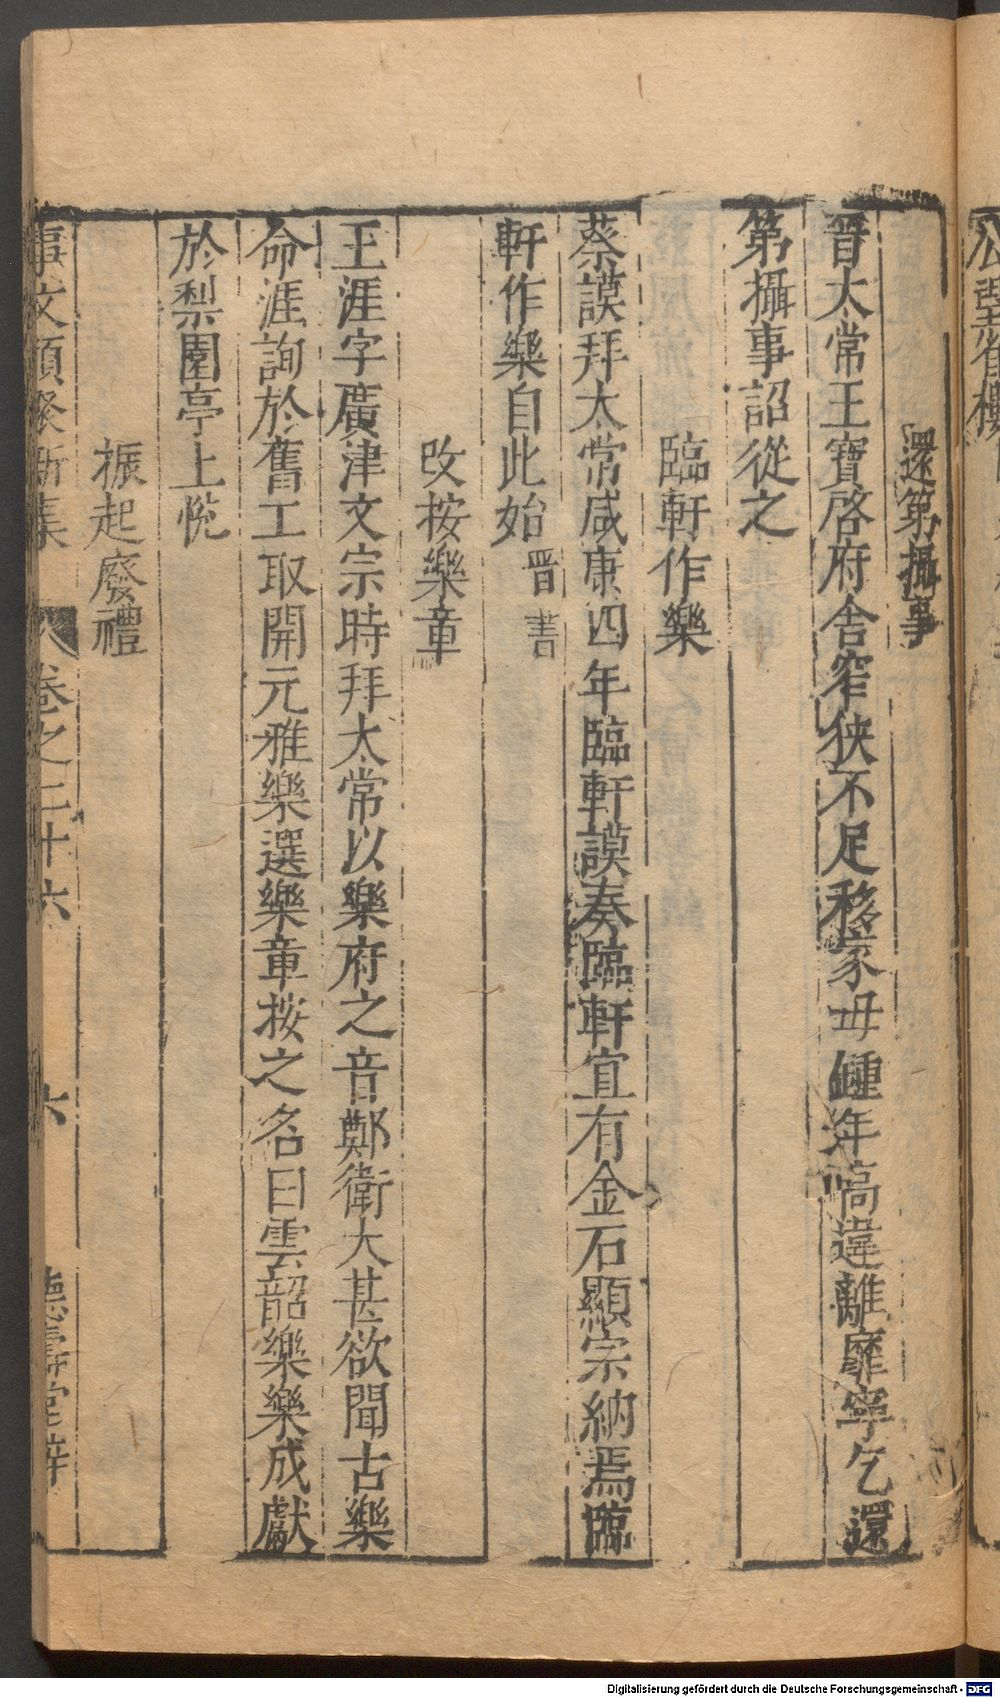 還第攝事
晉太常王寶啓府舍窄狹不足移家母鍾年嗃違離靡寧乞還
第攝事詔從之
臨軒作樂
蔡謨拜太常咸康四年臨軒謨奏臨軒宜有金石顯宗納焉臨
軒作樂自此始晉書
改按樂章
王涯字廣津文宗時拜太常以樂府之音鄭衛大甚欲聞古樂
命涯詢於舊工取開元雅樂選樂章按之名曰雲韶樂樂成獻
於梨園亭上悅
振起廢禮
事文類聚新集 卷之二十六 六 德壽堂梓
Digitalisierung gefördert durch die Deutsche Forschungsgemeinschaft - DFG